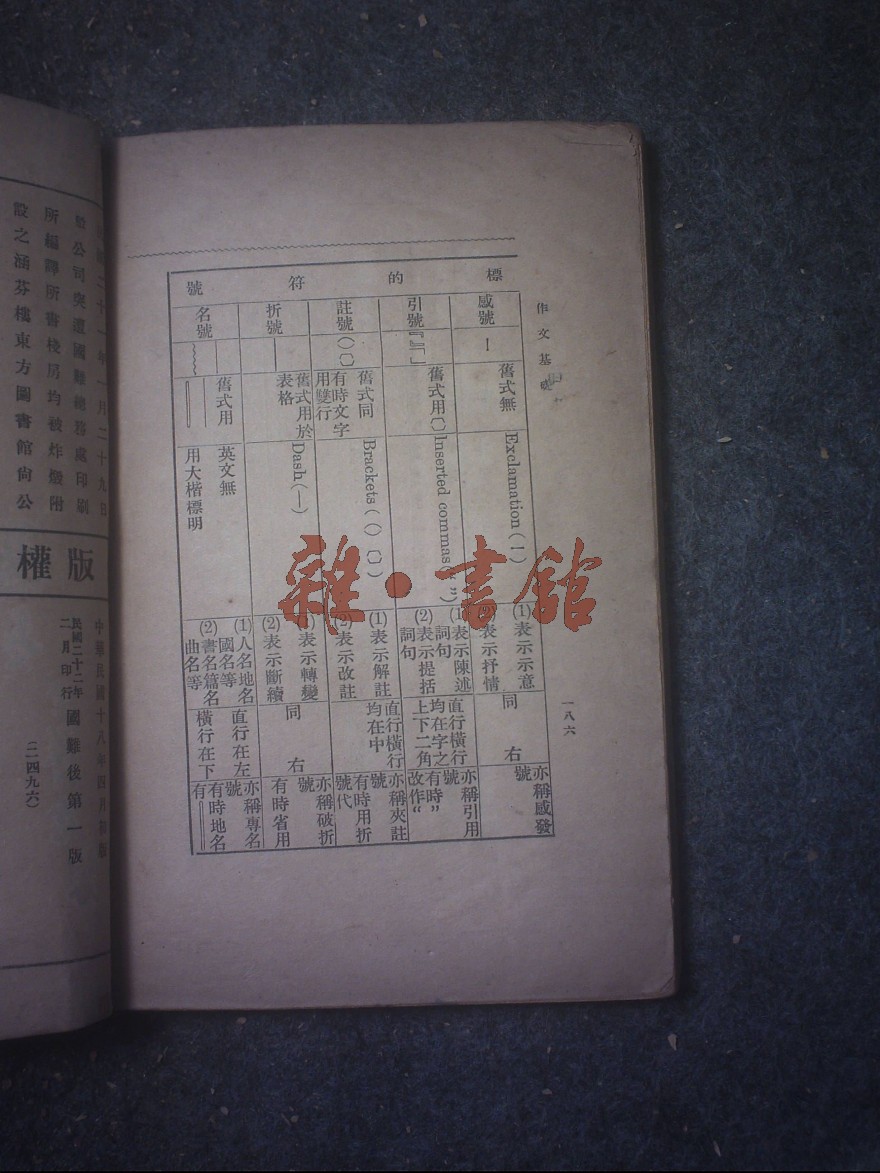 作文基
一八六
標的符號
感號
！
舊式無
Exclamation (！)
(1)表示示意
(2)表示抒情
同右
亦稱感發
號
引號
『』「」
舊式用〔〕
Inserted commas (“ ”)
(1)表示陳述
詞句
(2)表示提括
詞句
直行橫行
均在字之
上下二角
亦稱引用
號
有時”
改作“
註號
()〔〕
舊式同
有時文字
用雙行
Brackets (()〔〕)
(1)表示解註
(2)表示改註
直行橫行
均在中
亦稱夾註
號
有時用折
號代
折號
—
舊式用於
表格
Dash (—)
(1)表示轉變
(2)表示斷續
同右
亦稱破折
號
有時省用
名號
舊式用
英文無
用大楷標明
(1)人名地名
國名等
(2)書名篇名
曲名等
直行在左
橫行在下
亦稱專名
號
有時地名
有
雜·書館
二十一年一月二十九日
公司與遭國難總務處印刷
所編譯所書棧房均被炸燬附
設之涵芬樓東方圖書館尙公
版權
中華民國十八年四月初版
民國二十二年
二月印行
國難後第一版
(二四九六)